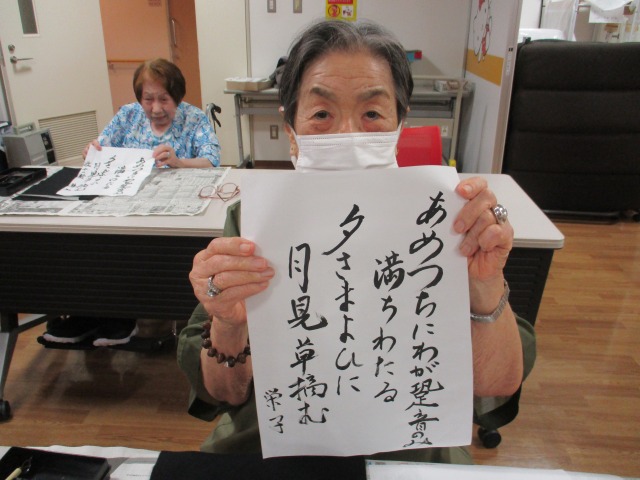 あめつちにわが跫音のみ
満ちわたる
夕さまよひに
月見草摘む
栄子